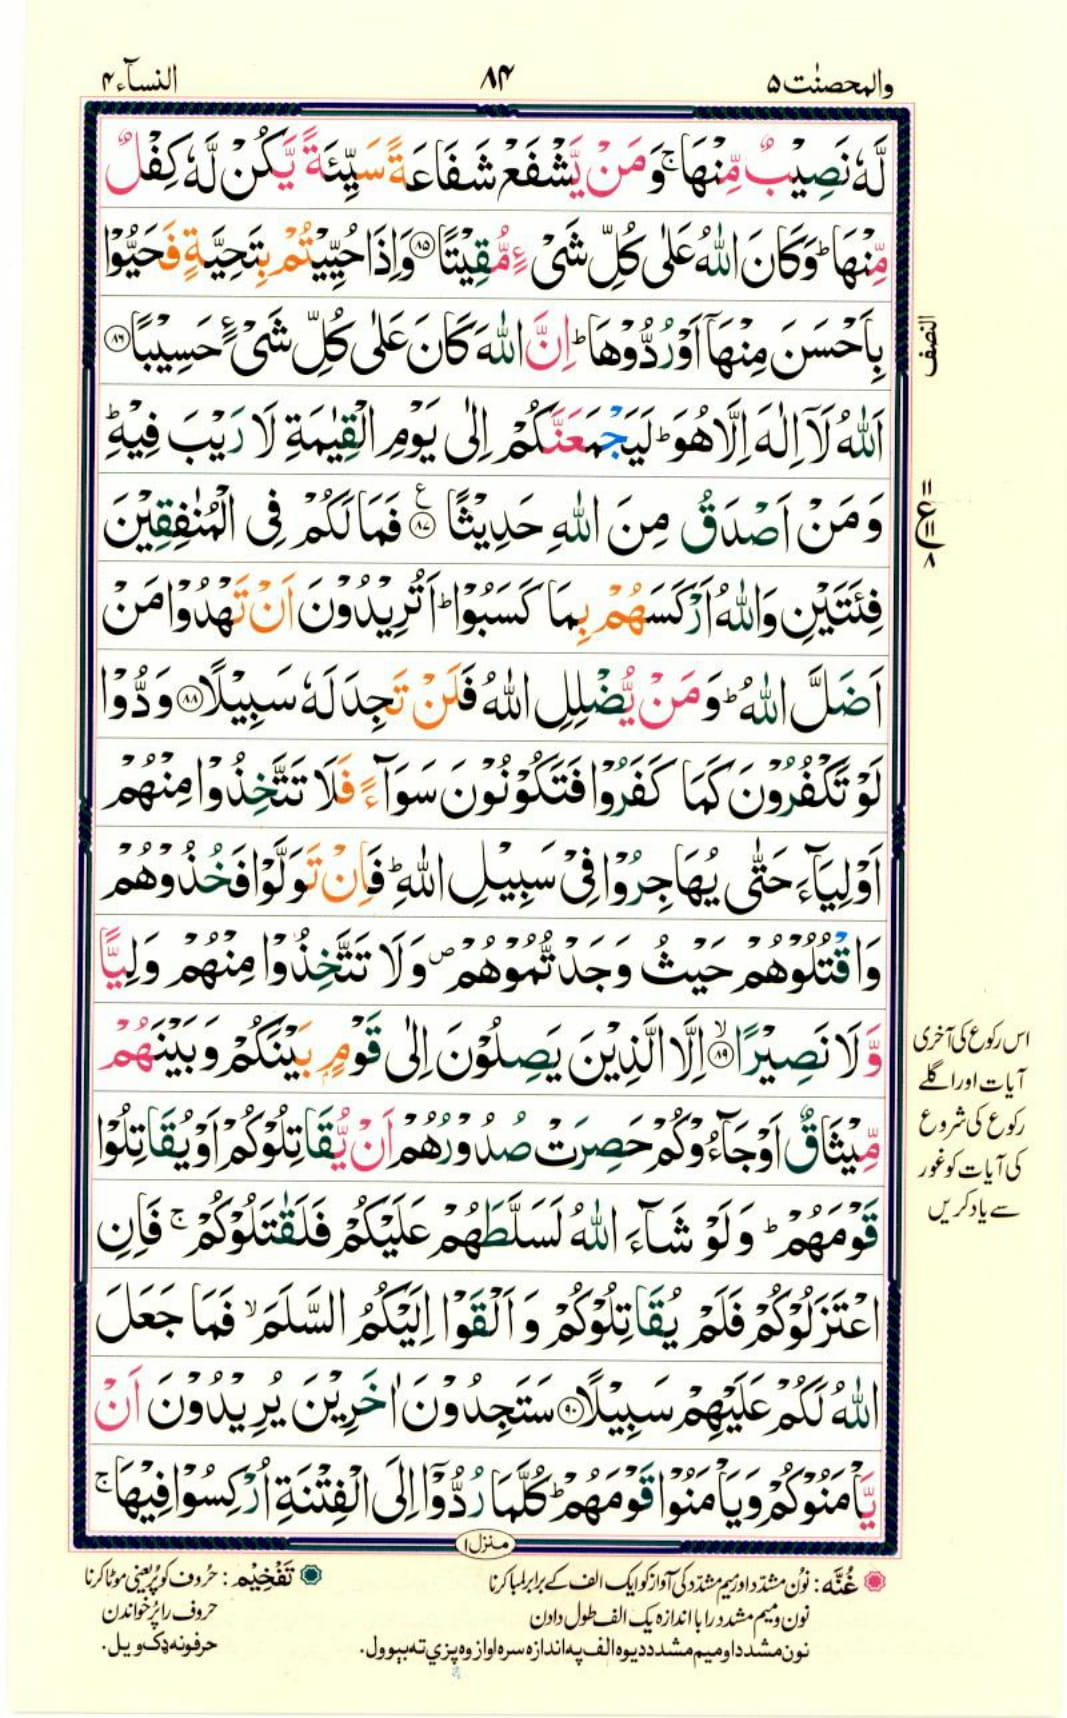 والمحصنٰت ۵
۸۴
النسآء ۴
لَّهٗ نَصِیْبٌ مِّنْهَا ۚ وَ مَنْ یَّشْفَعْ شَفَاعَةً سَیِّئَةً یَّكُنْ لَّهٗ كِفْلٌ
مِّنْهَا ؕ وَ كَانَ اللّٰهُ عَلٰی كُلِّ شَیْءٍ مُّقِیْتًا ﴿۸۵﴾ وَ اِذَا حُیِّیْتُمْ بِتَحِیَّةٍ فَحَیُّوْا
بِاَحْسَنَ مِنْهَاۤ اَوْ رُدُّوْهَا ؕ اِنَّ اللّٰهَ كَانَ عَلٰی كُلِّ شَیْءٍ حَسِیْبًا ﴿۸۶﴾
النصف
اَللّٰهُ لَاۤ اِلٰهَ اِلَّا هُوَ ؕ لَیَجْمَعَنَّكُمْ اِلٰی یَوْمِ الْقِیٰمَةِ لَا رَیْبَ فِیْهِ ؕ
وَ مَنْ اَصْدَقُ مِنَ اللّٰهِ حَدِیْثًا ﴿۸۷﴾ ع فَمَا لَكُمْ فِی الْمُنٰفِقِیْنَ
۱۱
ع
۱۱
۸
فِئَتَیْنِ وَ اللّٰهُ اَرْكَسَهُمْ بِمَا كَسَبُوْا ؕ اَتُرِیْدُوْنَ اَنْ تَهْدُوْا مَنْ
اَضَلَّ اللّٰهُ ؕ وَ مَنْ یُّضْلِلِ اللّٰهُ فَلَنْ تَجِدَ لَهٗ سَبِیْلًا ﴿۸۸﴾ وَدُّوْا
لَوْ تَكْفُرُوْنَ كَمَا كَفَرُوْا فَتَكُوْنُوْنَ سَوَآءً فَلَا تَتَّخِذُوْا مِنْهُمْ
اَوْلِیَآءَ حَتّٰی یُهَاجِرُوْا فِیْ سَبِیْلِ اللّٰهِ ؕ فَاِنْ تَوَلَّوْا فَخُذُوْهُمْ
وَ اقْتُلُوْهُمْ حَیْثُ وَجَدْتُّمُوْهُمْ ۪ وَ لَا تَتَّخِذُوْا مِنْهُمْ وَلِیًّا
وَّ لَا نَصِیْرًا ﴿۸۹﴾ۙ اِلَّا الَّذِیْنَ یَصِلُوْنَ اِلٰی قَوْمٍۭ بَیْنَكُمْ وَ بَیْنَهُمْ
مِّیْثَاقٌ اَوْ جَآءُوْكُمْ حَصِرَتْ صُدُوْرُهُمْ اَنْ یُّقَاتِلُوْكُمْ اَوْ یُقَاتِلُوْا
قَوْمَهُمْ ؕ وَ لَوْ شَآءَ اللّٰهُ لَسَلَّطَهُمْ عَلَیْكُمْ فَلَقٰتَلُوْكُمْ ۚ فَاِنِ
اعْتَزَلُوْكُمْ فَلَمْ یُقَاتِلُوْكُمْ وَ اَلْقَوْا اِلَیْكُمُ السَّلَمَ ۙ فَمَا جَعَلَ
اللّٰهُ لَكُمْ عَلَیْهِمْ سَبِیْلًا ﴿۹۰﴾ سَتَجِدُوْنَ اٰخَرِیْنَ یُرِیْدُوْنَ اَنْ
یَّاْمَنُوْكُمْ وَ یَاْمَنُوْا قَوْمَهُمْ ؕ كُلَّمَا رُدُّوْۤا اِلَی الْفِتْنَةِ اُرْكِسُوْا فِیْهَا ۚ
اس رکوع کی آخری
آیات اور اگلے
رکوع کی شروع
کی آیات کو غور
سے یاد کریں
منزل ۱
غُنَّه: نون مشدد اور میم مشدد کی آواز کو ایک الف کے برابر لمبا کرنا
نون و میم مشدد را با اندازه یک الف طول دادن
نون مشدد او میم مشدد دیوه الف په اندازه سره اواز وه پزي ته بېوول.
تَفْخِیْم: حروف کو پُر یعنی موٹا کرنا
حروف را پُر خواندن
حرفونه ډک ویل.